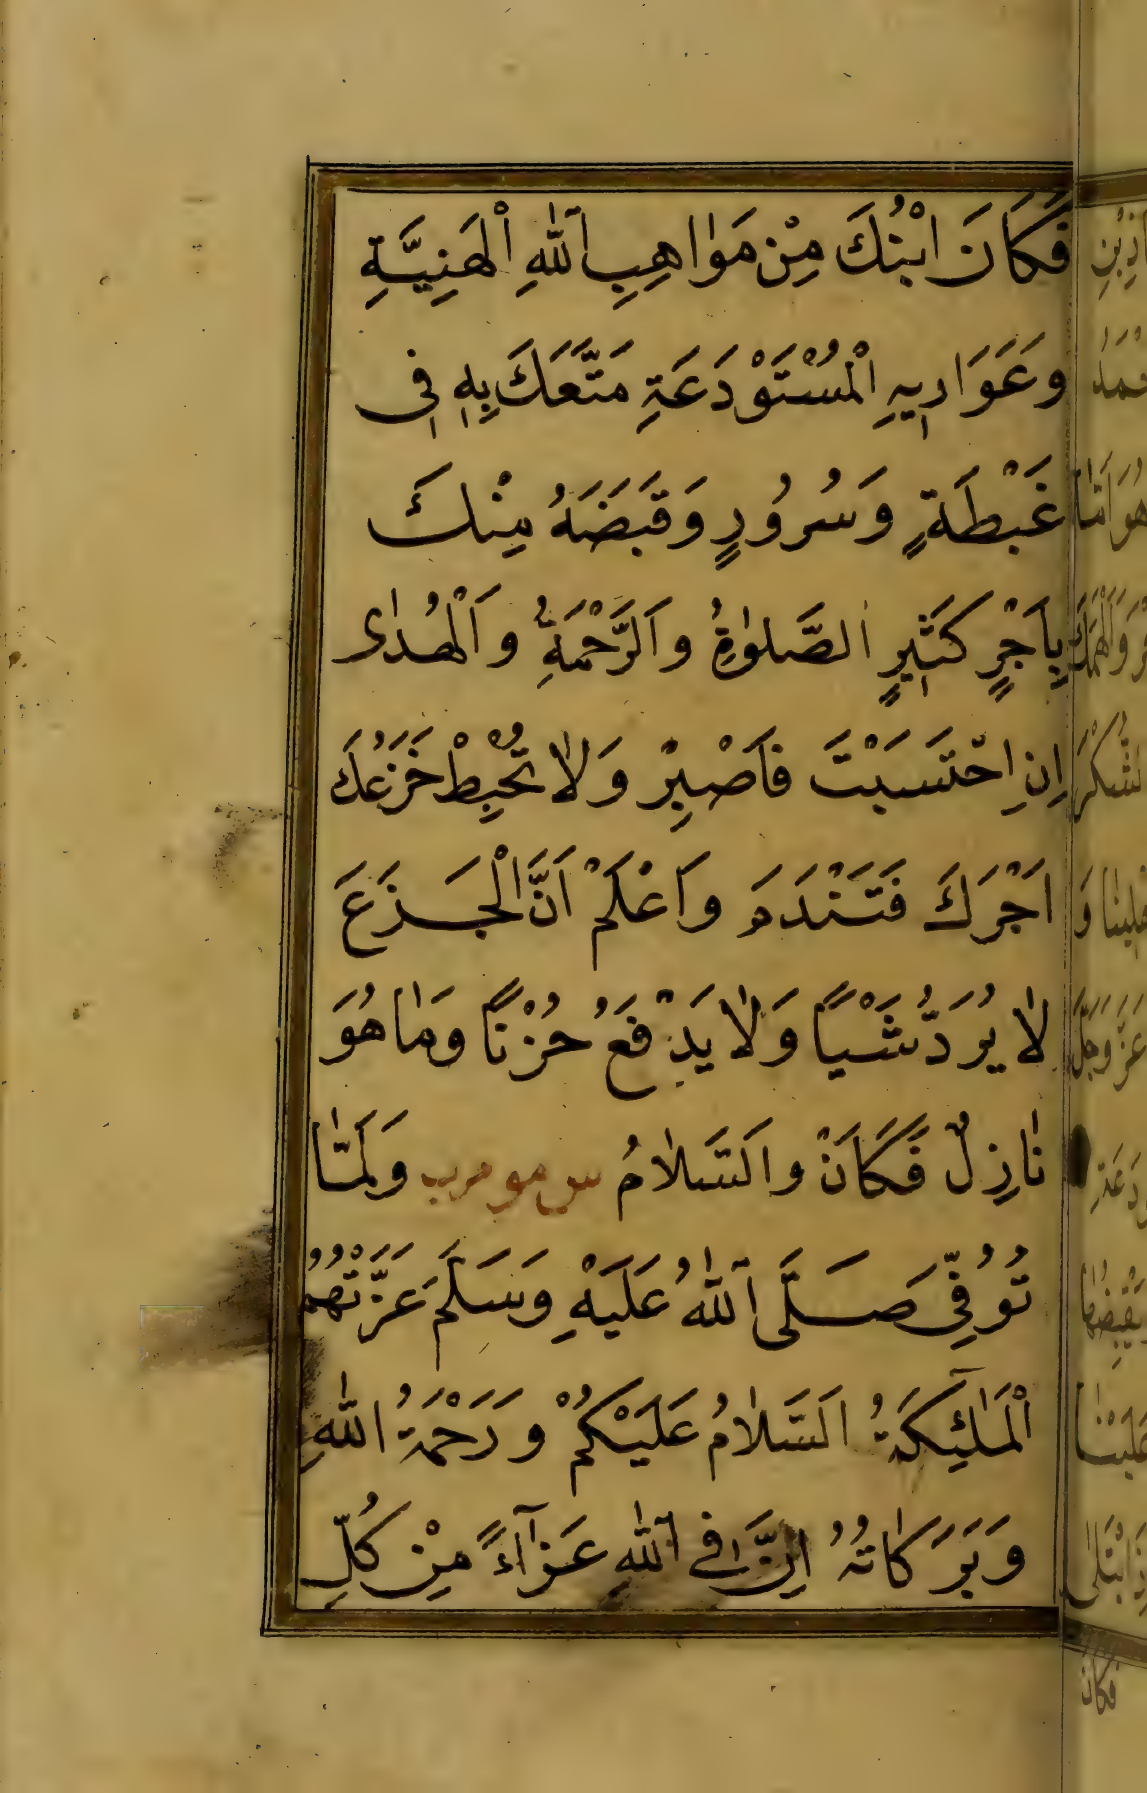 فَكَانَ ابْنُكَ مِنْ مَوَاهِبِ اللّٰهِ الْهَنِيَّةِ
وَعَوَارِيهِ الْمُسْتَوْدَعَةِ مَتَّعَكَ بِهٖ فِى
غَبْطَةٍ وَسُرُورٍ وَقَبَضَهُ مِنْكَ
بِاَجْرٍ كَثِيرٍ الصَّلٰوةُ وَالرَّحْمَةُ وَالْهُدٰى
اِنِ احْتَسَبْتَ فَاصْبِرْ وَلَا تُحْبِطْ جَزَعُكَ
اَجْرَكَ فَتَنْدَمَ وَاعْلَمْ اَنَّ الْجَزَعَ
لَا يَرُدُّ شَيْيًا وَلَا يَدْفَعُ حُزْنًا وَمَا هُوَ
نَازِلٌ فَكَانَ وَالسَّلَامُ س مو مر ب وَلَمَّا
تُوُفِّىَ صَلَّى اللّٰهُ عَلَيْهِ وَسَلَّمَ عَزَّتْهُمُ
الْمَلٰٓئِكَةُ السَّلَامُ عَلَيْكُمْ وَرَحْمَةُ اللّٰهِ
وَبَرَكَاتُهُ اِنَّ فِى اللّٰهِ عَزَآءً مِنْ كُلِّ
فكان